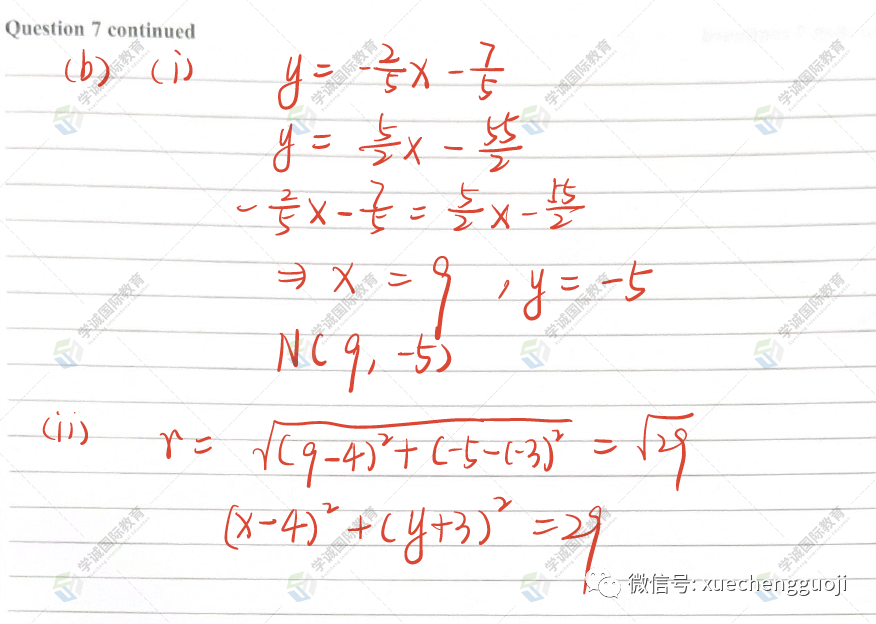 Question 7 continued
(b) (i) y = -2/5 x - 7/5
y = 5/2 x - 55/2
-2/5 x - 7/5 = 5/2 x - 55/2
⇒ x = 9 , y = -5
N(9, -5)
(ii) r = √((9-4)²+(-5-(-3)²) = √29
(x-4)²+(y+3)²=29
微信号: xuechengguoji
学诚国际教育